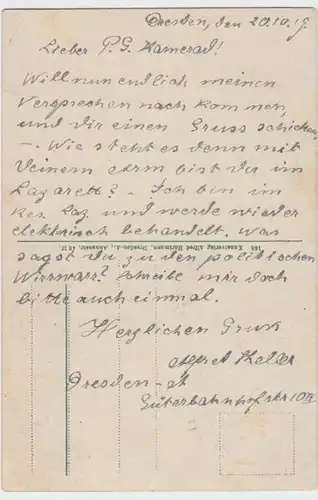 Dresden, den 20.10.19.
Lieber P.G. Kamerad!
Will nun endlich meinen
Versprechen nach kommen,
und dir einen Gruss schicken,
-. Wie steht es denn mit
Deinem Arm bist du im
Lazarett? - Ich bin im
Res Laz und werde wieder
elektrisch behandelt. Was
sagst du zu den politischen
Wirrwarr? Schreibe mir doch
bitte auch einmal.
Herzlichen Gruss
Alfred Keller
Dresden - A
Güterbahnhofstr 10
Kunstverlag Alfred Hartmann, Dresden-A.